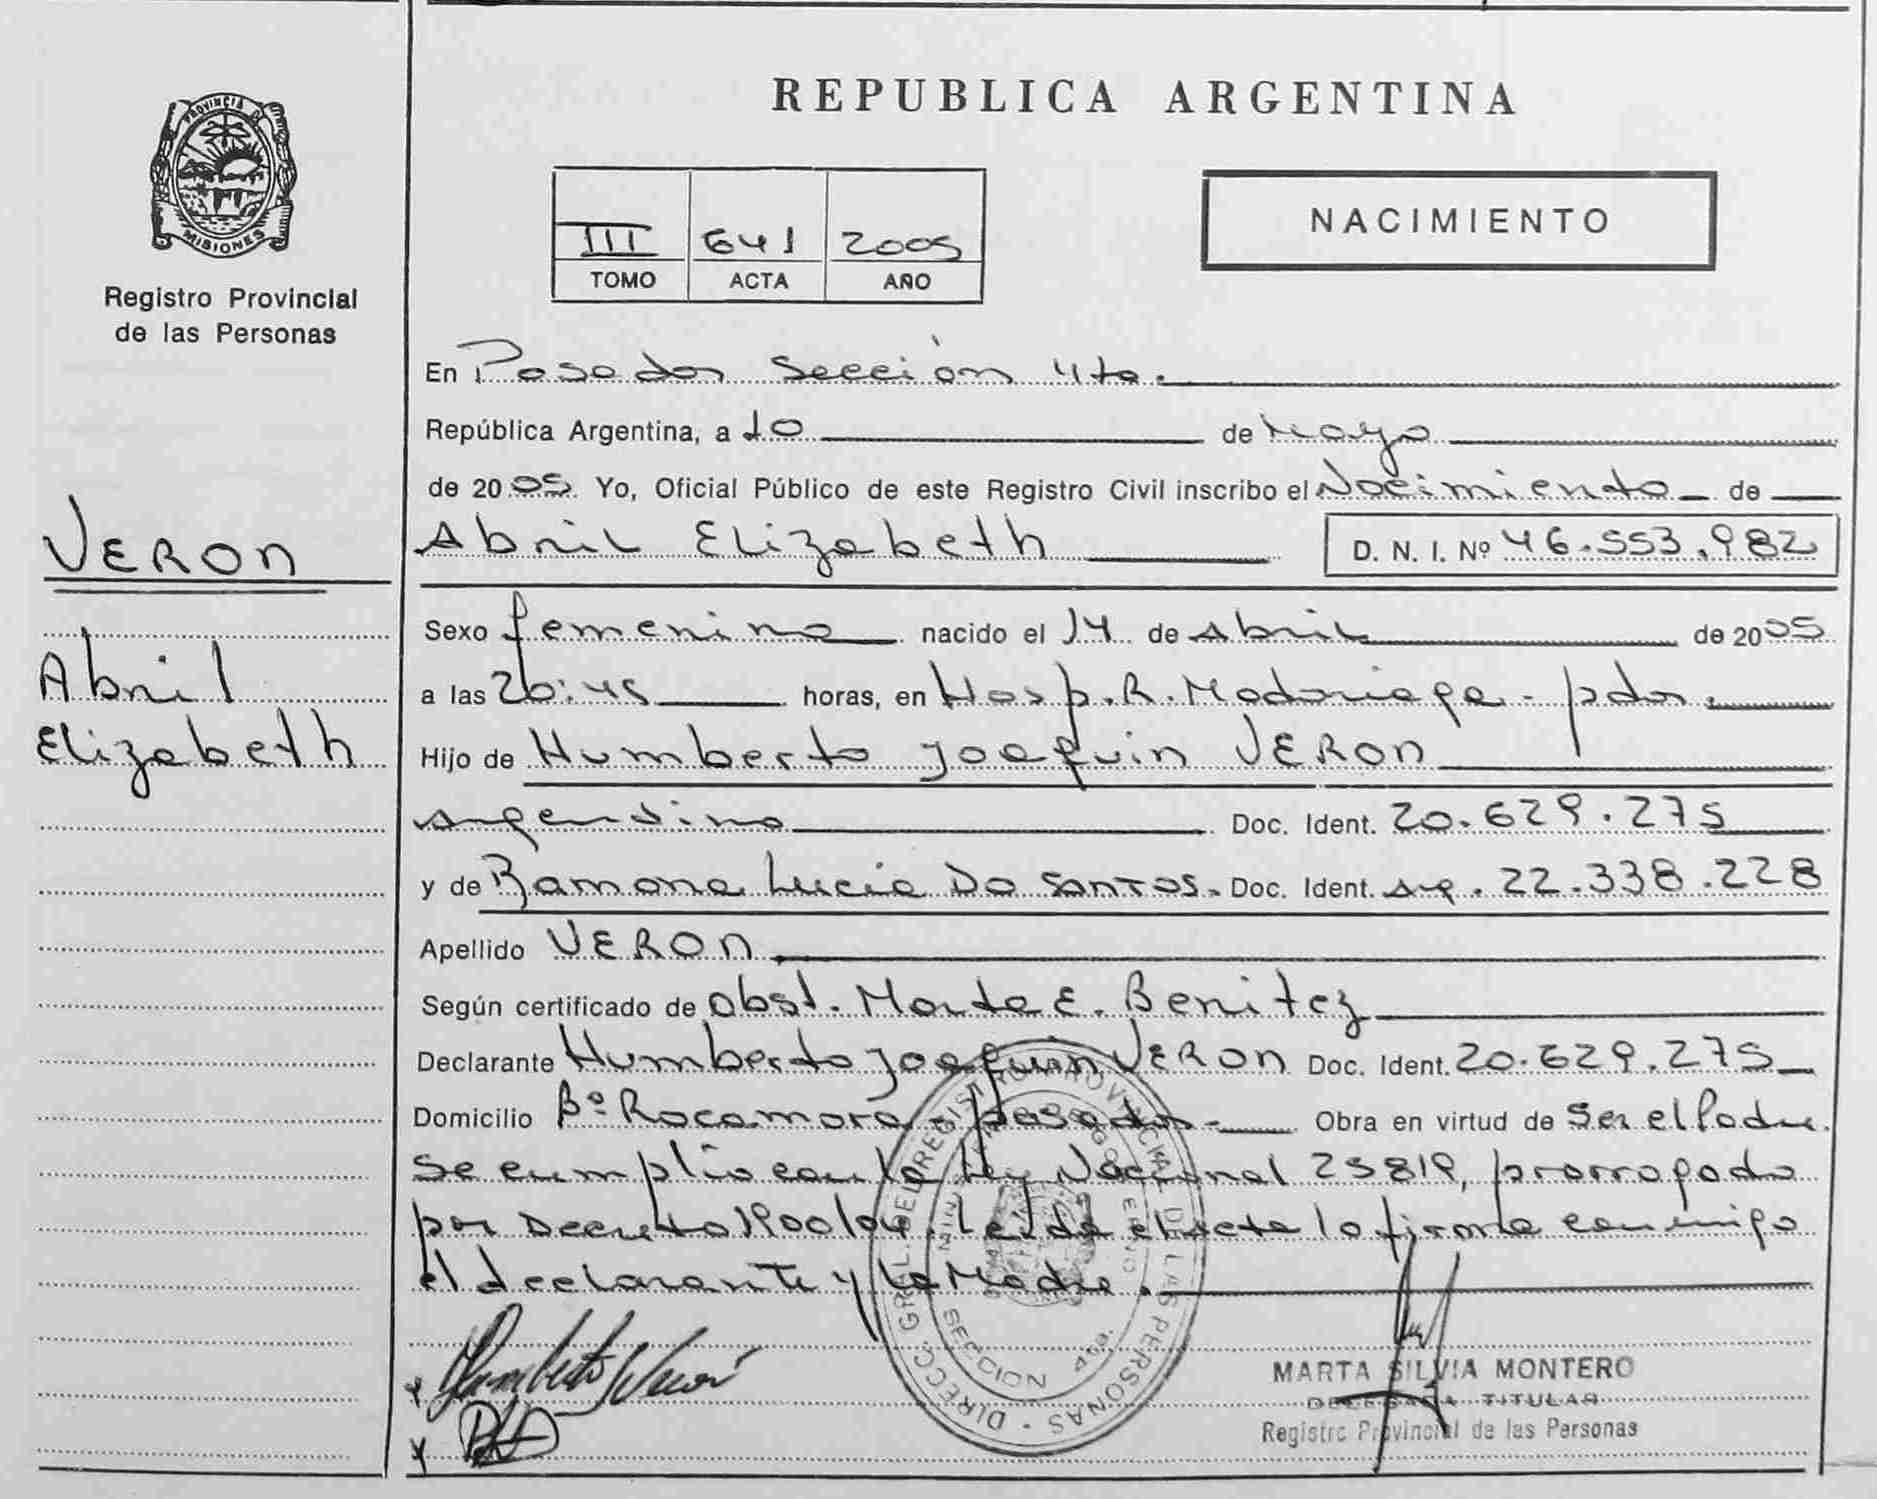 PROVINCIA DE
MISIONES
Registro Provincial
de las Personas
VERON
Abril
Elizabeth
REPUBLICA ARGENTINA
III 641 2005
TOMO ACTA AÑO
NACIMIENTO
En Posadas Sección 4ta.
República Argentina, a 10 de Mayo
de 2005. Yo, Oficial Público de este Registro Civil inscribo el Nacimiento de
Abril Elizabeth D. N. I. Nº 46.553.982
Sexo femenino nacido el 14 de Abril de 2005
a las 20:45 horas, en Hosp. R. Madariaga - pdas.
Hijo de Humberto Joaquin VERON
Argentino Doc. Ident. 20.629.275
y de Ramona Lucia DO SANTOS. Doc. Ident. Arg. 22.338.228
Apellido VERON
Según certificado de Obst. Marta E. Benitez
Declarante Humberto Joaquin VERON Doc. Ident. 20.629.275
Domicilio Bº Rocamora - Posadas - Obra en virtud de Ser el Padre.
Se cumplio con la Ley Nacional 25819, prorrogada
por Decreto 1900/04. Leida el acta la firma conmigo
el declarante y la Madre.
Humberto Veron
DIRECC. GRAL. DEL REGISTRO PROVINCIAL DE LAS PERSONAS
SECCION 4ta.
MARTA SILVIA MONTERO
DELEGADA TITULAR
Registro Provincial de las Personas